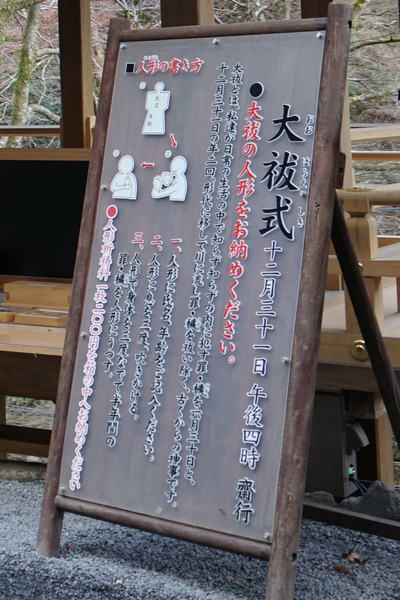 大祓式 十二月三十一日 午後四時 齋行
おお はらえ しき
●大祓の人形をお納めください。
大祓とは、私達が日常の生活の中で知らず知らずの内に犯す罪・穢を六月三十日と、
十二月三十一日の年二回、形代に移して川に流し罪・穢を祓い除く、古くからの神事です。
■人形の書き方
ひとがた
氏名 年齢
一、人形に氏名、年齢をご記入ください。
二、人形に息を三度、吹きかける。
三、人形で身体を三度なでて、半年間の
罪・穢を人形にうつす。
●人形祈祷料 一枚一〇〇円を箱の中へお納めください